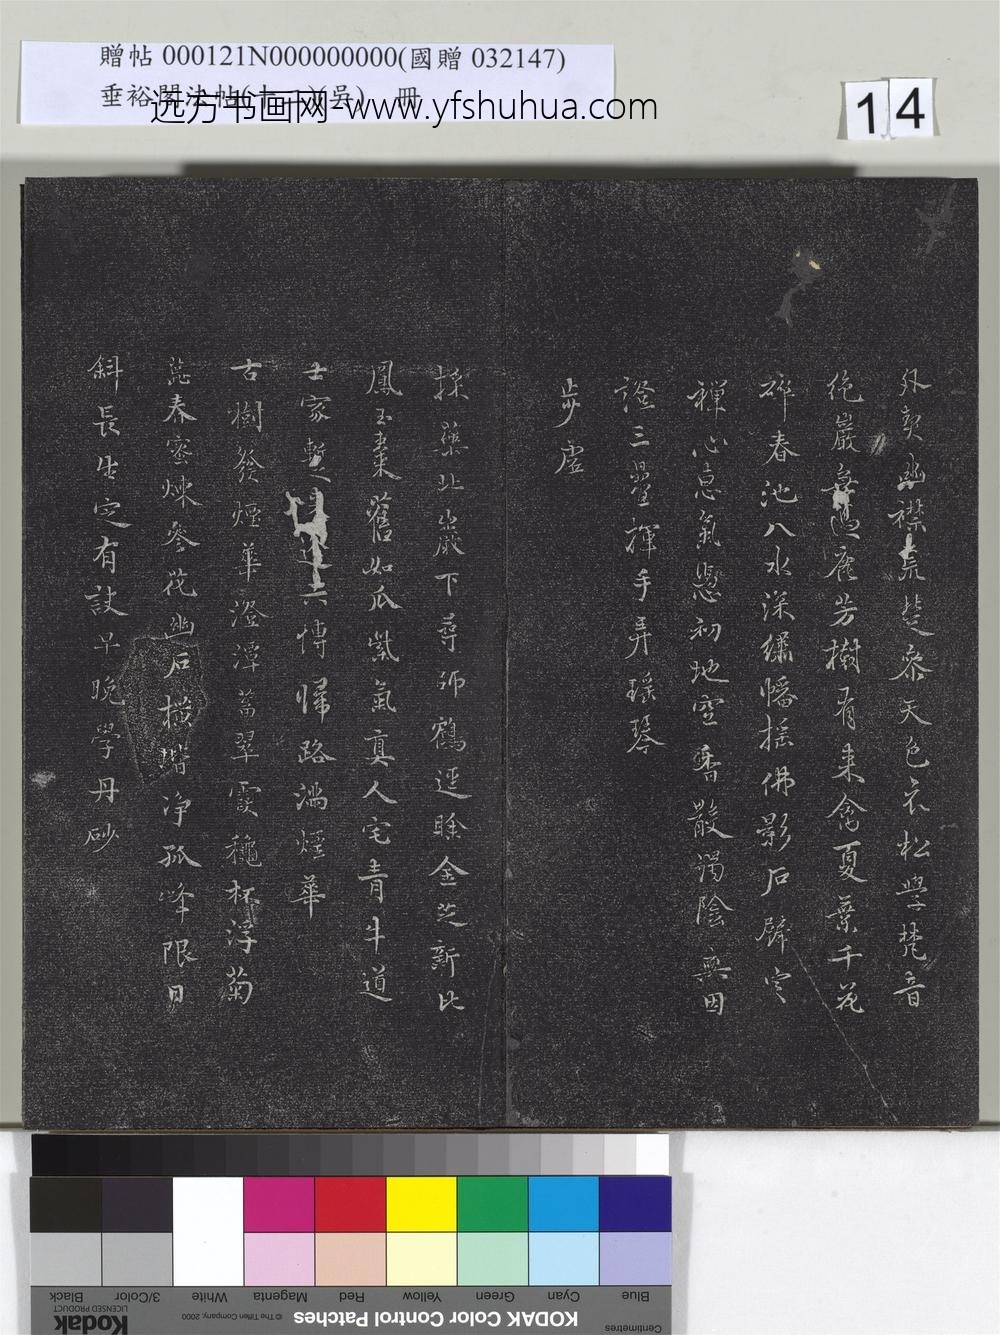 贈帖 000121N000000000(國贈 032147)
垂裕閣法帖(十二)(吳) 冊
远方书画网-www.yfshuhua.com
14
外契幽襟荒楚參天色衣松學梵音
絕巖無過鹿芳樹有來禽夏葉千花
碎春池八水深繡幡搖佛影石壁空
禪心息氣還初地空香散謁陰無因
證三疊揮手弄瑤琴
步虛
採藥北巖下尋師鶴逕賒金芝新比
鳳玉棗舊如瓜紫氣真人宅青牛道
士家暫 六博歸路滿煙華
古樹發煙華澄潭蓄翠霞穐杯浮菊
蕊春蜜煉參花幽石橫堦净孤峰限日
斜長生定有訣早晚學丹砂
Blue
Cyan
Green
Yellow
Red
Magenta
White
3/Color
Black
Centimetres
KODAK Color Control Patches
© The Tiffen Company, 2000
Kodak
LICENSED PRODUCT